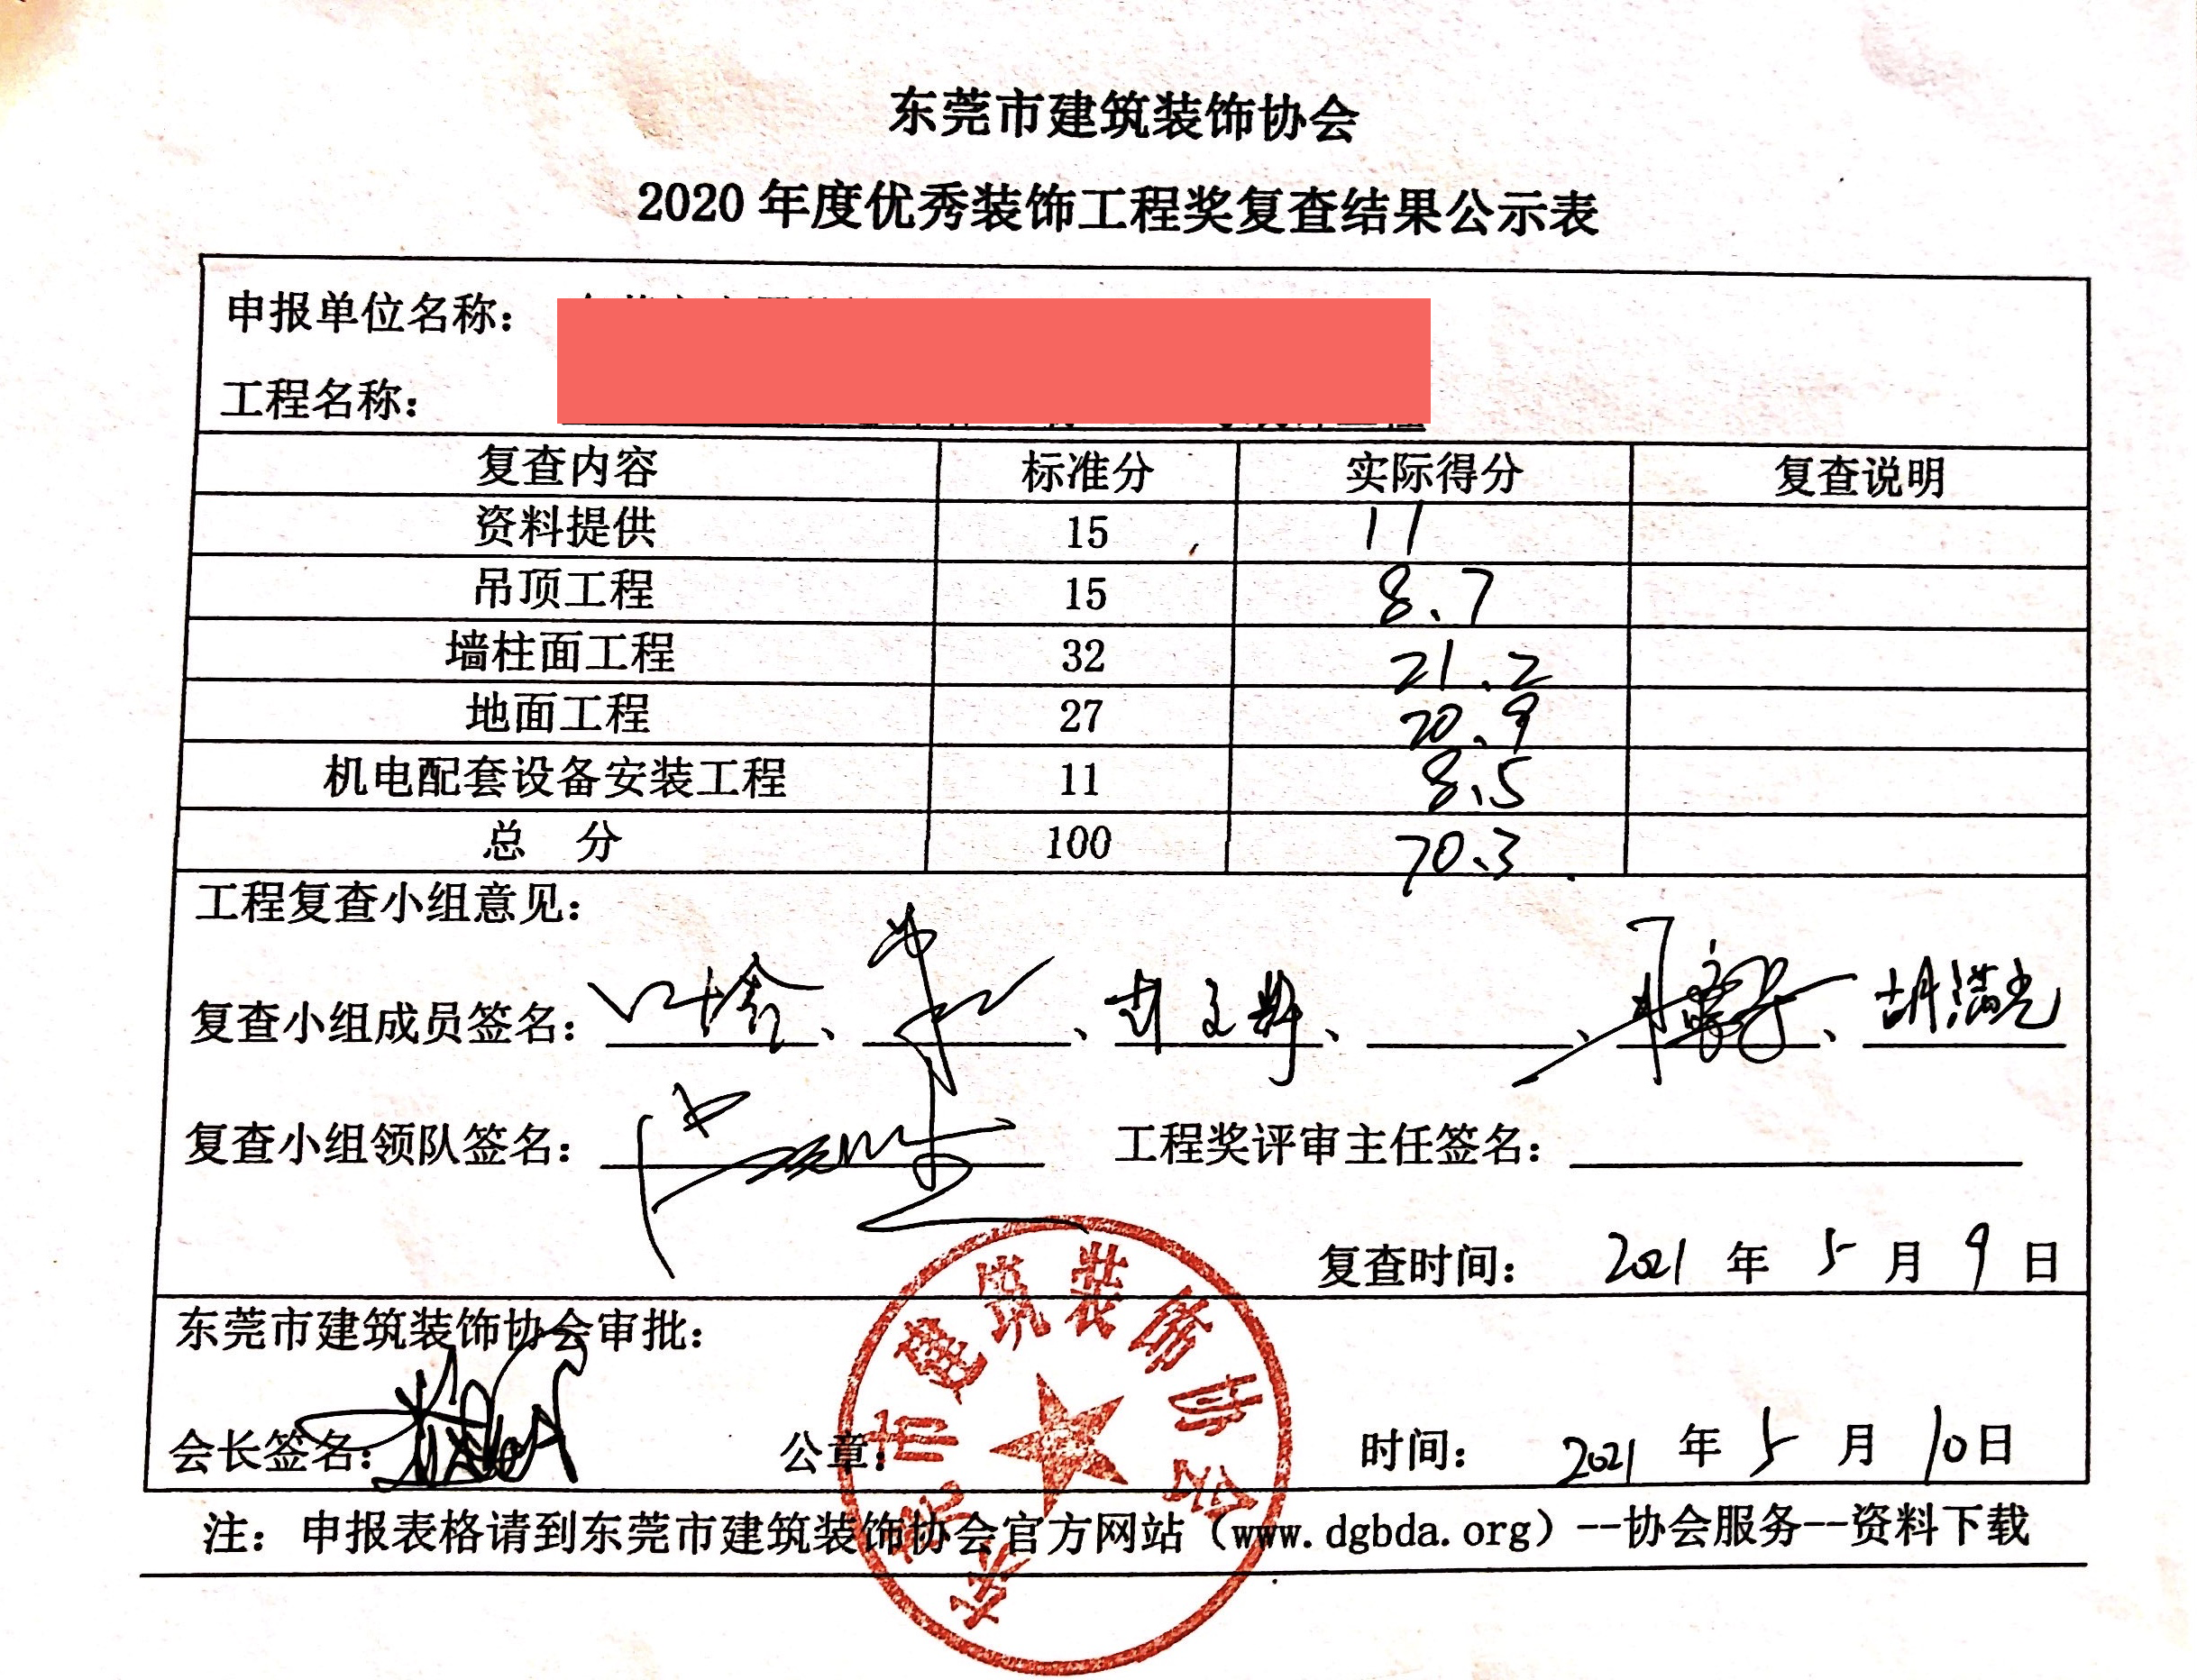 东莞市建筑装饰协会
2020 年度优秀装饰工程奖复查结果公示表
申报单位名称：
工程名称：
复查内容 标准分 实际得分 复查说明
资料提供 15 11
吊顶工程 15 8.7
墙柱面工程 32 21.2
地面工程 27 20.9
机电配套设备安装工程 11 8.5
总 分 100 70.3
工程复查小组意见：
复查小组成员签名： 、 、 、 、 、胡满光
复查小组领队签名： 工程奖评审主任签名：
复查时间： 2021 年 5 月 9 日
东莞市建筑装饰协会审批：
会长签名： 公章： 时间： 2021 年 5 月 10 日
东莞市建筑装饰协会
注：申报表格请到东莞市建筑装饰协会官方网站（www.dgbda.org）--协会服务--资料下载